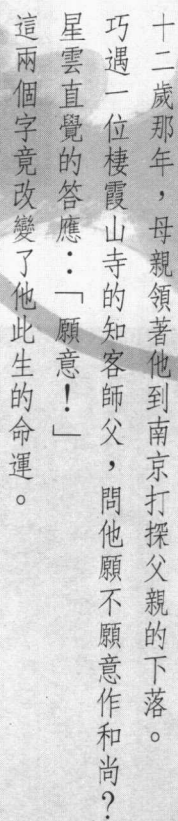 十二歲那年，母親領著他到南京打探父親的下落。
巧遇一位棲霞山寺的知客師父，問他願不願意作和尚？
星雲直覺的答應：「願意！」
這兩個字竟改變了他此生的命運。